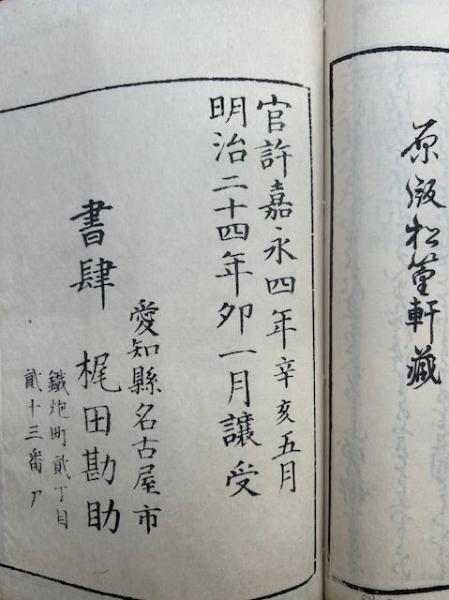 原版松篁軒藏
官許嘉永四年辛亥五月
明治二十四年卯一月讓受
愛知縣名古屋市
書肆 梶田勘助
鐵炮町貳丁目
貳十三番戸